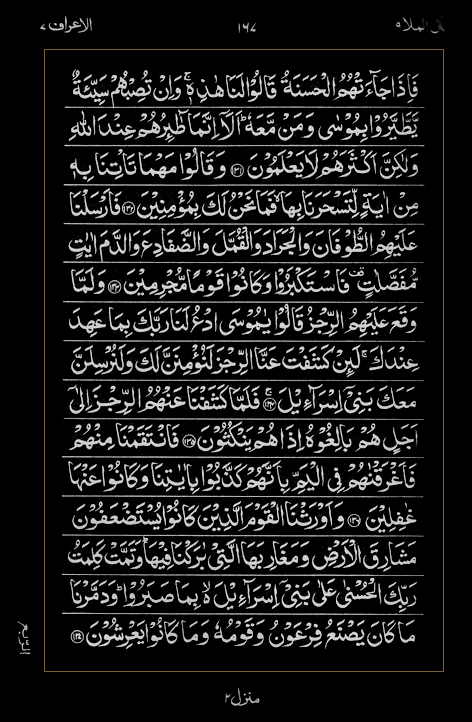 قال الملا ٩ ١٦٧ الاعراف ٧
فَاِذَا جَآءَتْهُمُ الْحَسَنَةُ قَالُوْا لَنَا هٰذِهٖ ۚ وَاِنْ تُصِبْهُمْ سَيِّئَةٌ
يَّطَّيَّرُوْا بِمُوْسٰى وَمَنْ مَّعَهٗ ؕ اَلَاۤ اِنَّمَا طٰٓئِرُهُمْ عِنْدَ اللّٰهِ
وَلٰكِنَّ اَكْثَرَهُمْ لَا يَعْلَمُوْنَ ﴿۱۳۱﴾ وَقَالُوْا مَهْمَا تَاْتِنَا بِهٖ
مِنْ اٰيَةٍ لِّتَسْحَرَنَا بِهَا ۙ فَمَا نَحْنُ لَكَ بِمُؤْمِنِيْنَ ﴿۱۳۲﴾ فَاَرْسَلْنَا
عَلَيْهِمُ الطُّوْفَانَ وَالْجَرَادَ وَالْقُمَّلَ وَالضَّفَادِعَ وَالدَّمَ اٰيٰتٍ
مُّفَصَّلٰتٍ ۫ فَاسْتَكْبَرُوْا وَكَانُوْا قَوْمًا مُّجْرِمِيْنَ ﴿۱۳۳﴾ وَلَمَّا
وَقَعَ عَلَيْهِمُ الرِّجْزُ قَالُوْا يٰمُوْسَى ادْعُ لَنَا رَبَّكَ بِمَا عَهِدَ
عِنْدَكَ ۚ لَئِنْ كَشَفْتَ عَنَّا الرِّجْزَ لَنُؤْمِنَنَّ لَكَ وَلَنُرْسِلَنَّ
مَعَكَ بَنِيْۤ اِسْرَآءِيْلَ ﴿۱۳۴﴾ ۚ فَلَمَّا كَشَفْنَا عَنْهُمُ الرِّجْزَ اِلٰۤى
اَجَلٍ هُمْ بٰلِغُوْهُ اِذَا هُمْ يَنْكُثُوْنَ ﴿۱۳۵﴾ فَانْتَقَمْنَا مِنْهُمْ
فَاَغْرَقْنٰهُمْ فِى الْيَمِّ بِاَنَّهُمْ كَذَّبُوْا بِاٰيٰتِنَا وَكَانُوْا عَنْهَا
غٰفِلِيْنَ ﴿۱۳۶﴾ وَاَوْرَثْنَا الْقَوْمَ الَّذِيْنَ كَانُوْا يُسْتَضْعَفُوْنَ
مَشَارِقَ الْاَرْضِ وَمَغَارِبَهَا الَّتِىْ بٰرَكْنَا فِيْهَا ؕ وَتَمَّتْ كَلِمَتُ
رَبِّكَ الْحُسْنٰى عَلٰى بَنِيْۤ اِسْرَآءِيْلَ ۙ۬ بِمَا صَبَرُوْا ؕ وَدَمَّرْنَا
مَا كَانَ يَصْنَعُ فِرْعَوْنُ وَقَوْمُهٗ وَمَا كَانُوْا يَعْرِشُوْنَ ﴿۱۳۷﴾
الربع
منزل ٢